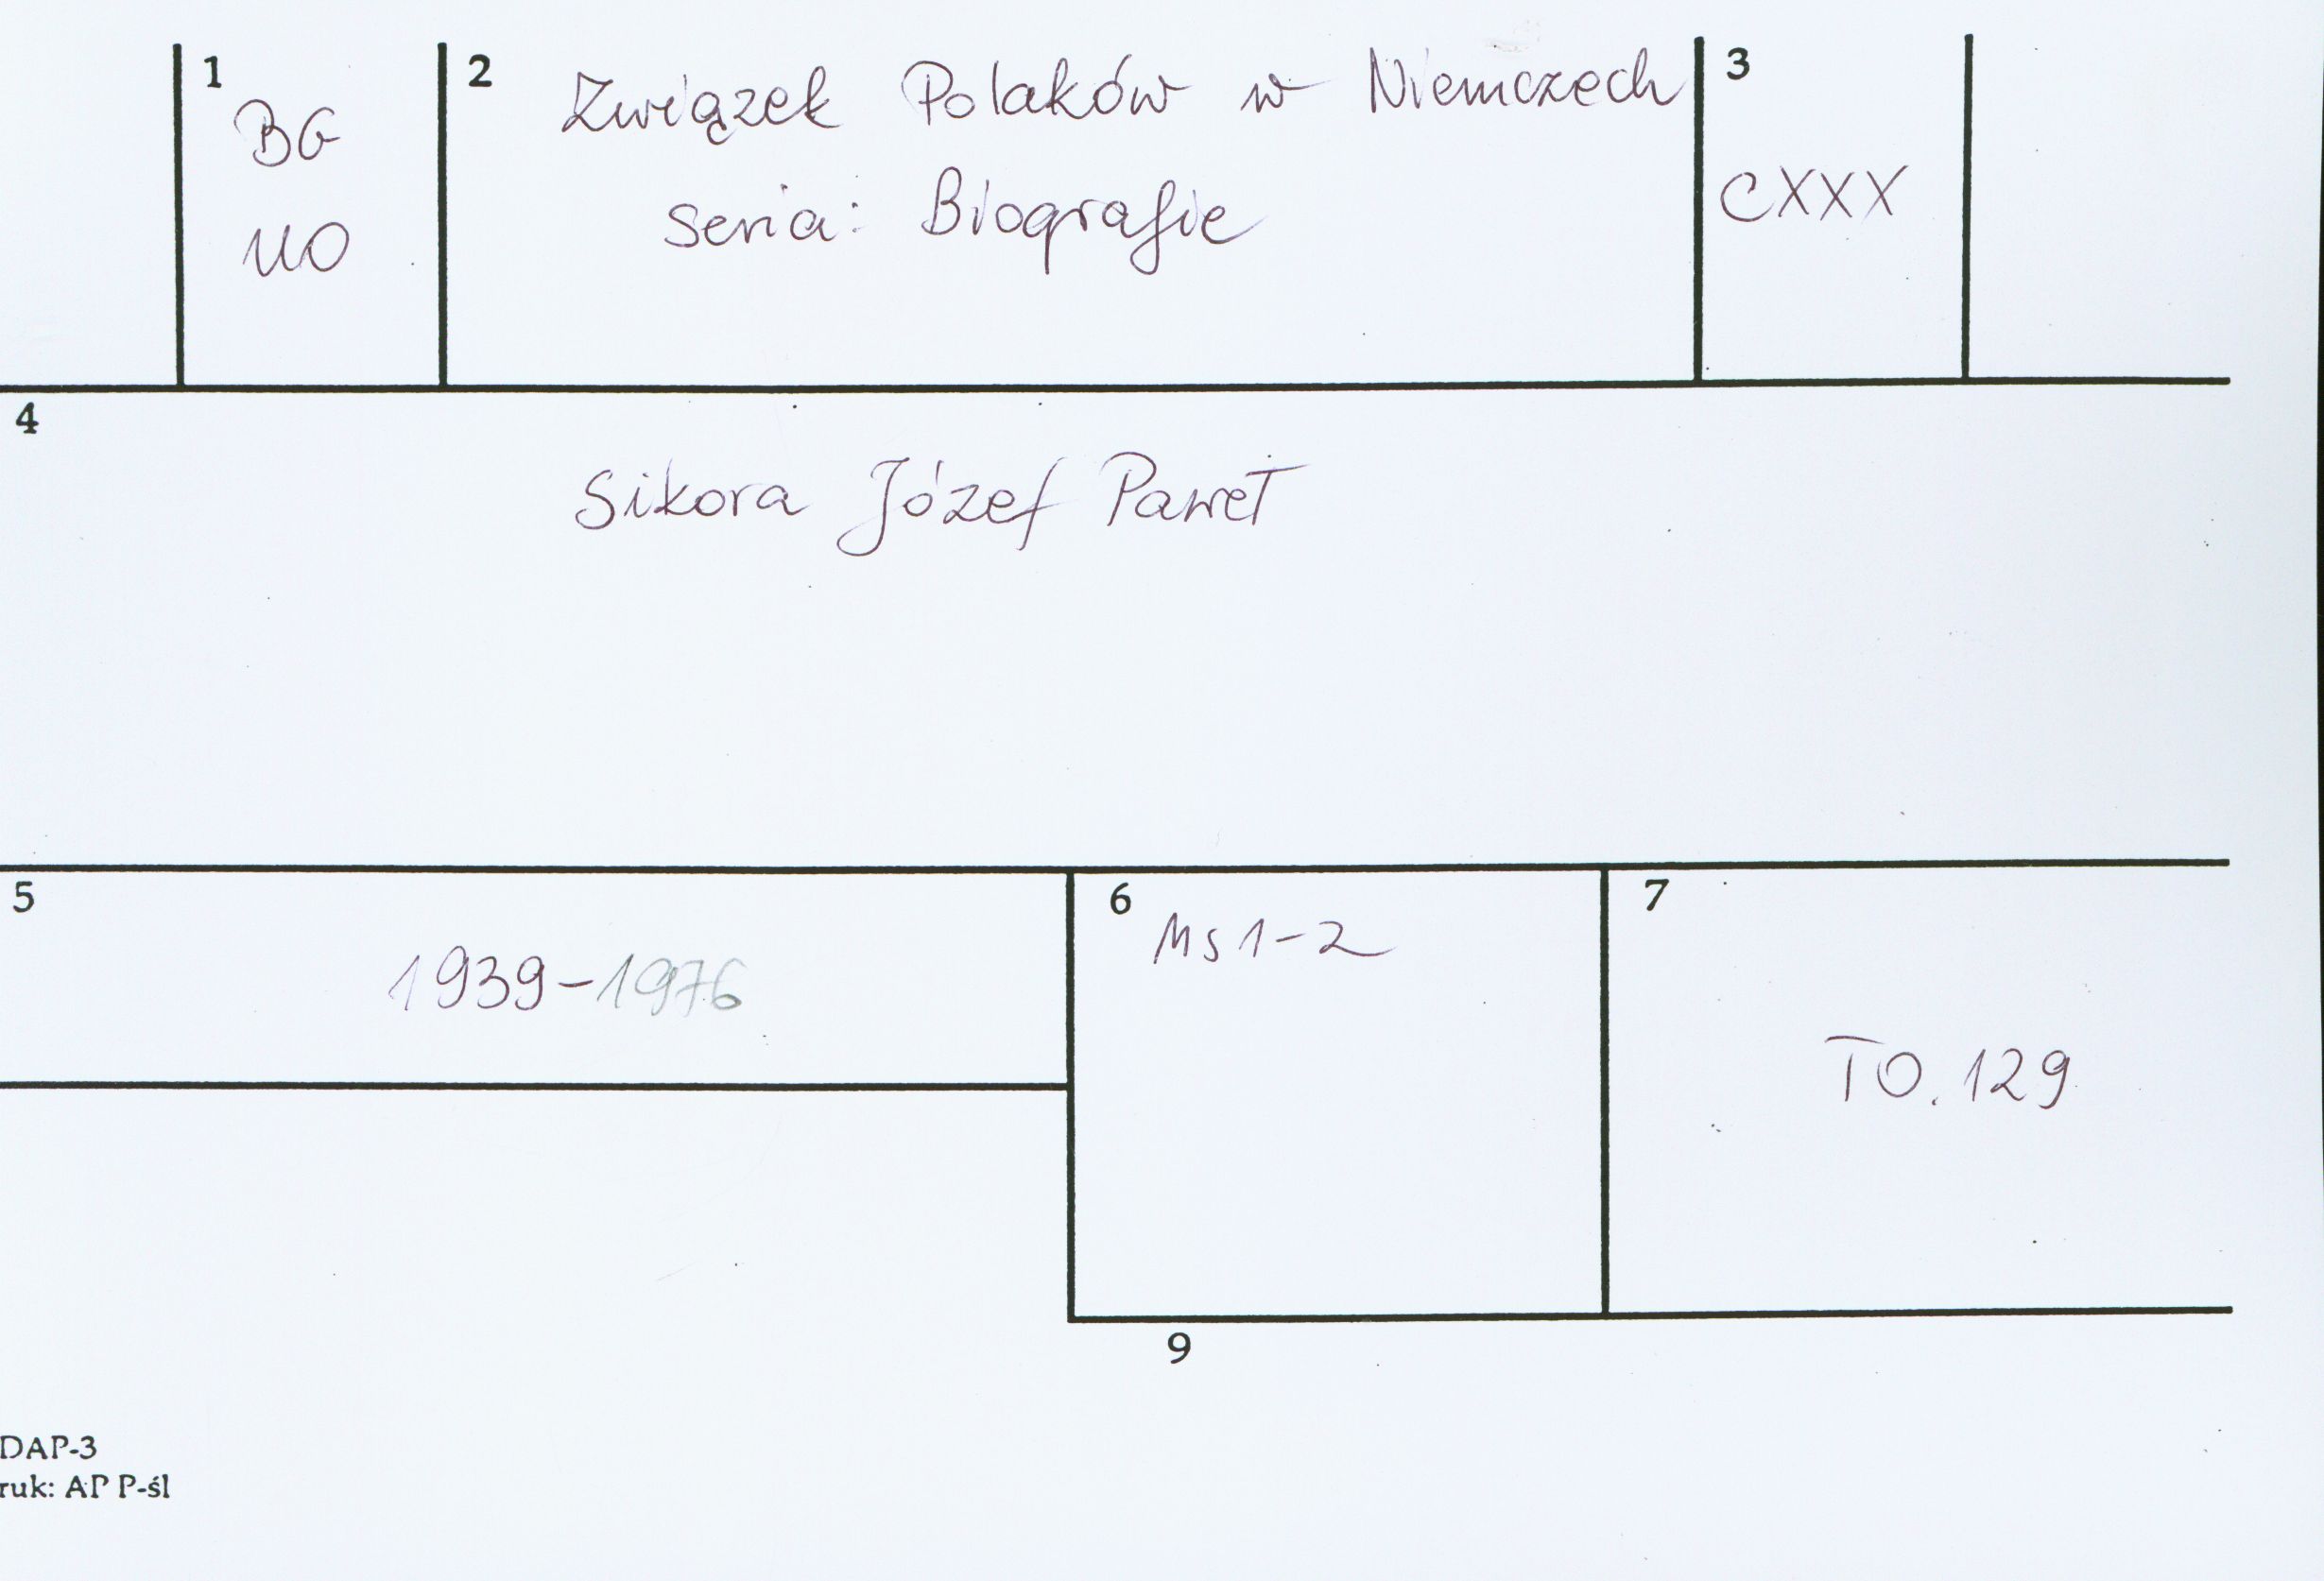 1
BG
UO
2
Związek Polaków w Niemczech
seria: Biografie
3
CXXX
4
Sikora Józef Paweł
5
1939-1976
6
Ms 1-2
7
TO. 129
9
DAP-3
ruk: AP P-śl